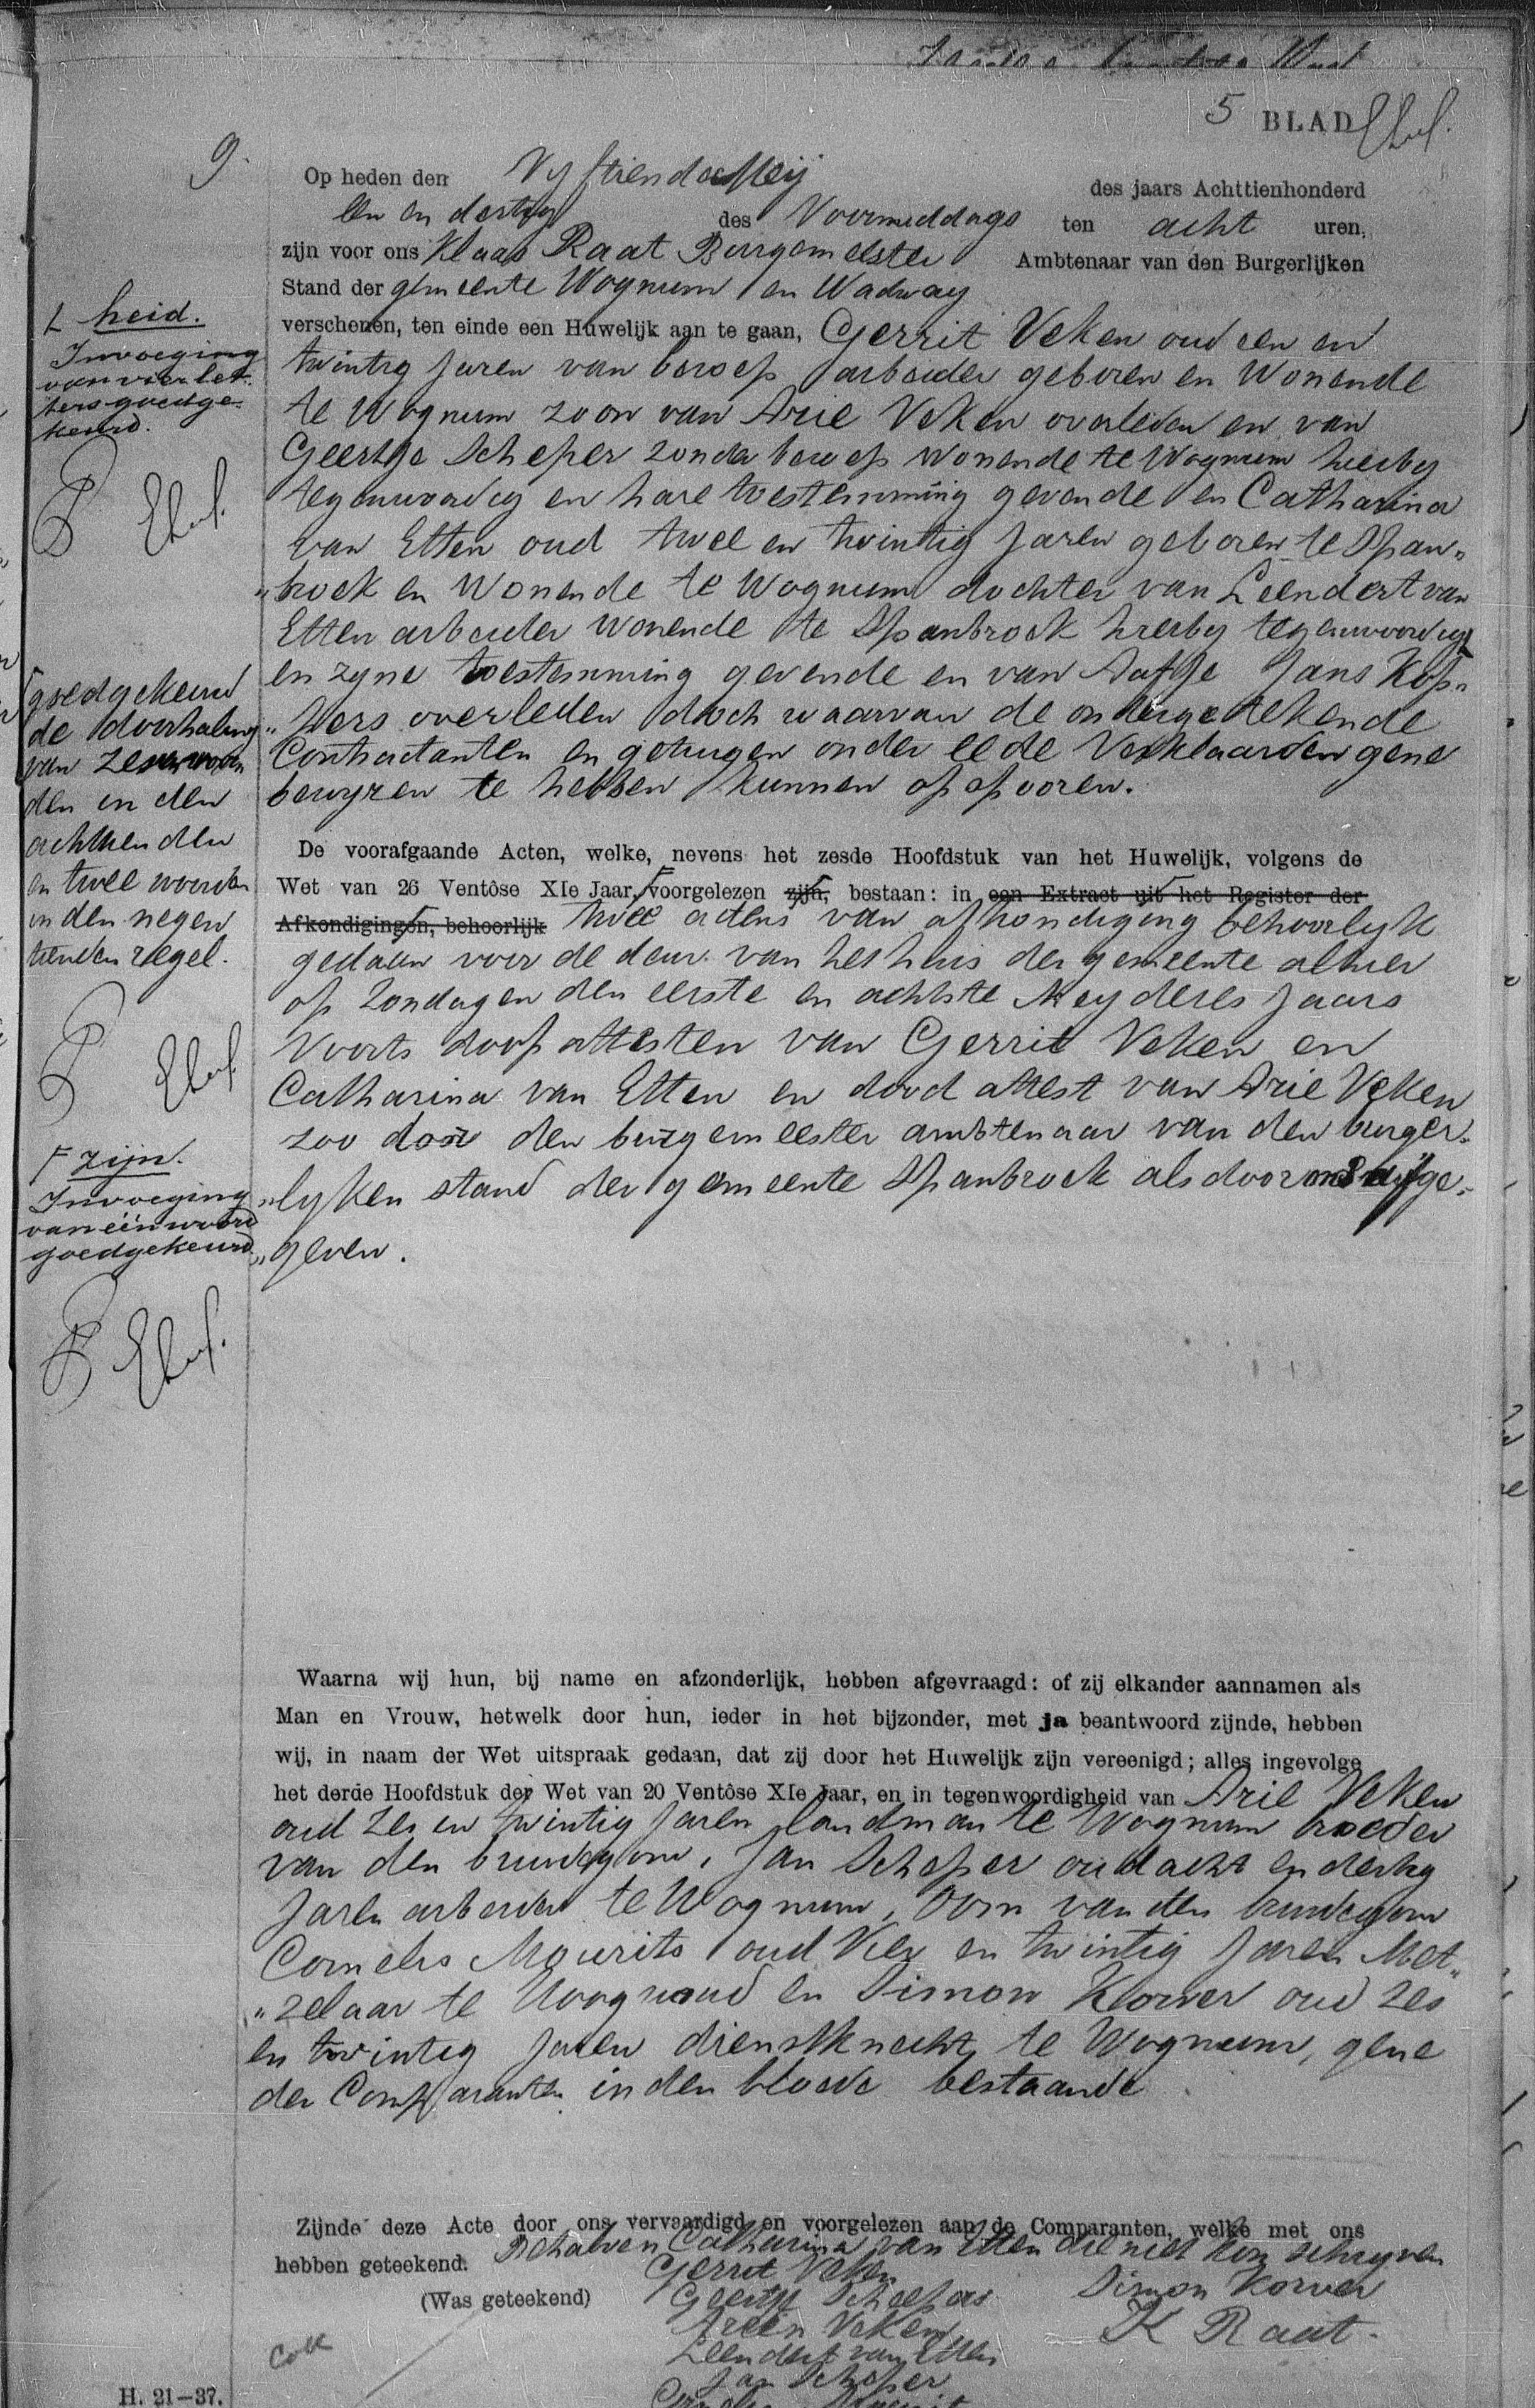 5 BLAD
9.
Op heden den Vyftiende Meij des jaars Achttienhonderd
een en dertig des Voormiddags ten acht uren,
zijn voor ons Klaas Raat Burgemeester Ambtenaar van den Burgerlijken
Stand der gemeente Wognum en Wadway
verschenen, ten einde een Huwelijk aan te gaan, Gerrit Veken oud een en
twintig Jaren van beroep arbeider geboren en Wonende
te Wognum zoon van Arie Veken overleden en van
Geertje Scheper zonder beroep wonende te Wognum hierby
tegenwoordig en hare toestemming gevende en Catharina
van Etten oud twee en twintig Jaren geboren te Span„
„broek en Wonende te Wognum dochter van Leendert van
Etten arbeider wonende te Spanbroek hierby tegenwoordig
en zyne toestemming gevende en van Aafje Jans Kop„
„pers overleden doch waarvan de ondergetekende
Contractanten en getuigen onder eede Verklaarden gene
bewyzen te hebben kunnen opspooren.
De voorafgaande Acten, welke, nevens het zesde Hoofdstuk van het Huwelijk, volgens de
Wet van 26 Ventôse XIe Jaar, voorgelezen zijn, bestaan: in een Extract uit het Register der
Afkondigingen, behoorlijk twee actens van afkondiging behoorlyk
gedaan voor de deur van het huis der gemeente alhier
op Zondagen den eerste en achtste Mey deres Jaars
Voorts doop attesten van Gerrit Veken en
Catharina van Etten en dood attest van Arie Veken
zoo door den burgemeester ambtenaar van den burger„
„lyken stand der gemeente Spanbroek als door ons afge„
„geven.
L heid.
Invoeging
van vier let„
ters goedge„
keurd.
goedgekeurd
de doorhaling
van zeven woor
den in den
achttienden
en twee woorden
in den negen
tienden regel.
F zijn.
Invoeging
van één woord
goedgekeurd
Waarna wij hun, bij name en afzonderlijk, hebben afgevraagd: of zij elkander aannamen als
Man en Vrouw, hetwelk door hun, ieder in het bijzonder, met ja beantwoord zijnde, hebben
wij, in naam der Wet uitspraak gedaan, dat zij door het Huwelijk zijn vereenigd; alles ingevolge
het derde Hoofdstuk der Wet van 20 Ventôse XIe Jaar, en in tegenwoordigheid van Arie Veken
oud zes en twintig Jaren landman te Wognum broeder
van den bruidegom, Jan Scheper oud acht en dertig
Jaren arbeider te Wognum, Oom van den bruidegom
Cornelis Mourits oud Vier en twintig Jaren Met„
„zelaar te Hoogwoud en Simon Korver oud zes
en twintig Jaren dienstknecht te Wognum, gene
der Comparanten in den bloede bestaande
Zijnde deze Acte door ons vervaardigd en voorgelezen aan de Comparanten, welke met ons
hebben geteekend. Behalven Catharina van Etten die niet kon schryven
(Was geteekend) Gerrit Veken
Geertje Scheepers Simon Korver
Areen Veken K Raat.
Leendert van Etten
Jan Scheper
H. 21—37.